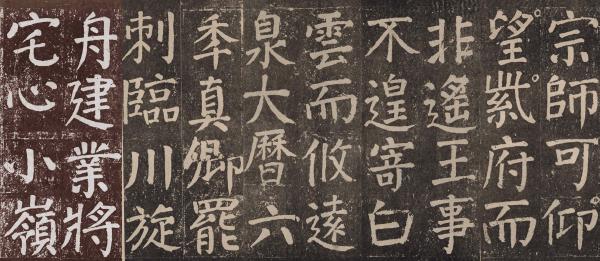 宗師可仰
望紫府而
非遙王事
不遑寄白
雲而攸遠
泉大曆六
秊真卿罷
刺臨川旋
舟建業將
宅心小嶺